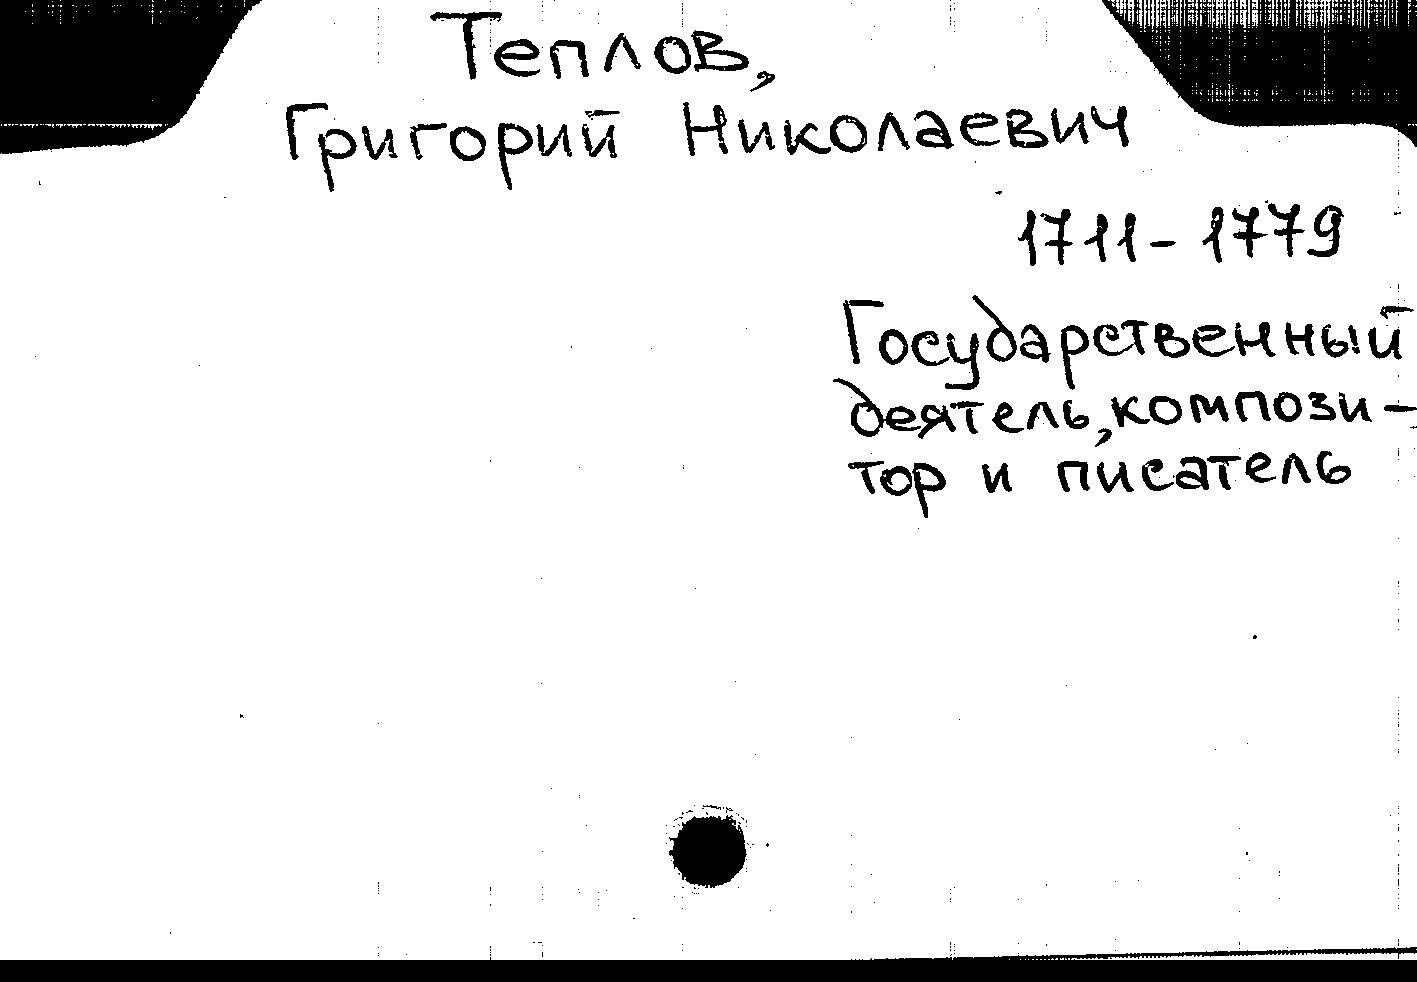 Теплов,
Григорий Николаевич
1711-1779
Государственный
деятель, компози-
тор и писатель